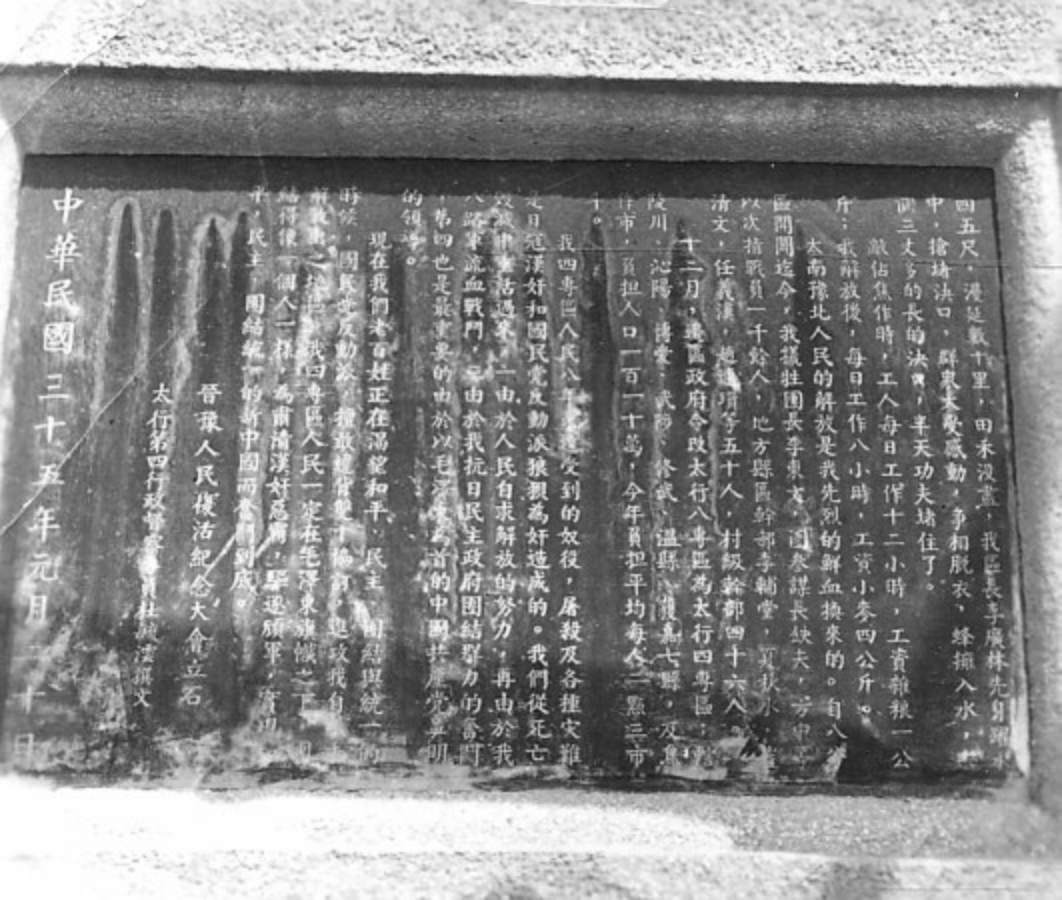 四五尺，漫延數十里，田禾淹盡，我區長李廣林先身躍
中，搶堵決口，群衆大受感動，爭相脫衣，蜂擁入水，
個三丈多的長的決口，半天功夫堵住了。
敵佔焦作時，工人每日工作十二小時，工資雜粮一公
斤；我解放後，每日工作八小時，工資小麥四公斤。
太南豫北人民的解放是我先烈的鮮血換來的。自八
區開闢迄今，我犧牲團長李東 團參謀長 夫，
以次指戰員一千餘人，地方縣區幹部李輔堂，
清文，任義漢， 等五十人，村級幹部四十六人
十二月，邊區政府令改太行八專區為太行四專區，
陵川、沁陽、博愛、武 、修武、溫縣、獲嘉七縣，及焦
作市，負担人口一百一十萬，今年負担平均每人二點三市
斗。
我四專區人民八年 受到的奴役，屠殺及各種灾難
是日寇漢奸和國民党反動派狼狽為奸造成的。我們從死亡
毀滅中 活過來，一由於人民自求解放的努力，再由於我
八路軍流血戰鬥，三由於我抗日民主政府團結群力的奮鬥
，第四也是最重要的由於以毛澤東為首的中國共產党英明
的領導。
現在我們老百姓正在渴望和平、民主、團結與統一的
時候，國民党反動派， 進攻我自
解放 我四專區人民一定在毛澤東旗幟之下，
結得像一個人一樣，為肅清漢奸惡霸，驅逐頑軍，實現
平，民主，團結統一的新中國而奮鬥到底。
晉豫人民復活紀念大會立石
太行第四行政督 員杜 撰文
中華民國三十五年元月二十日